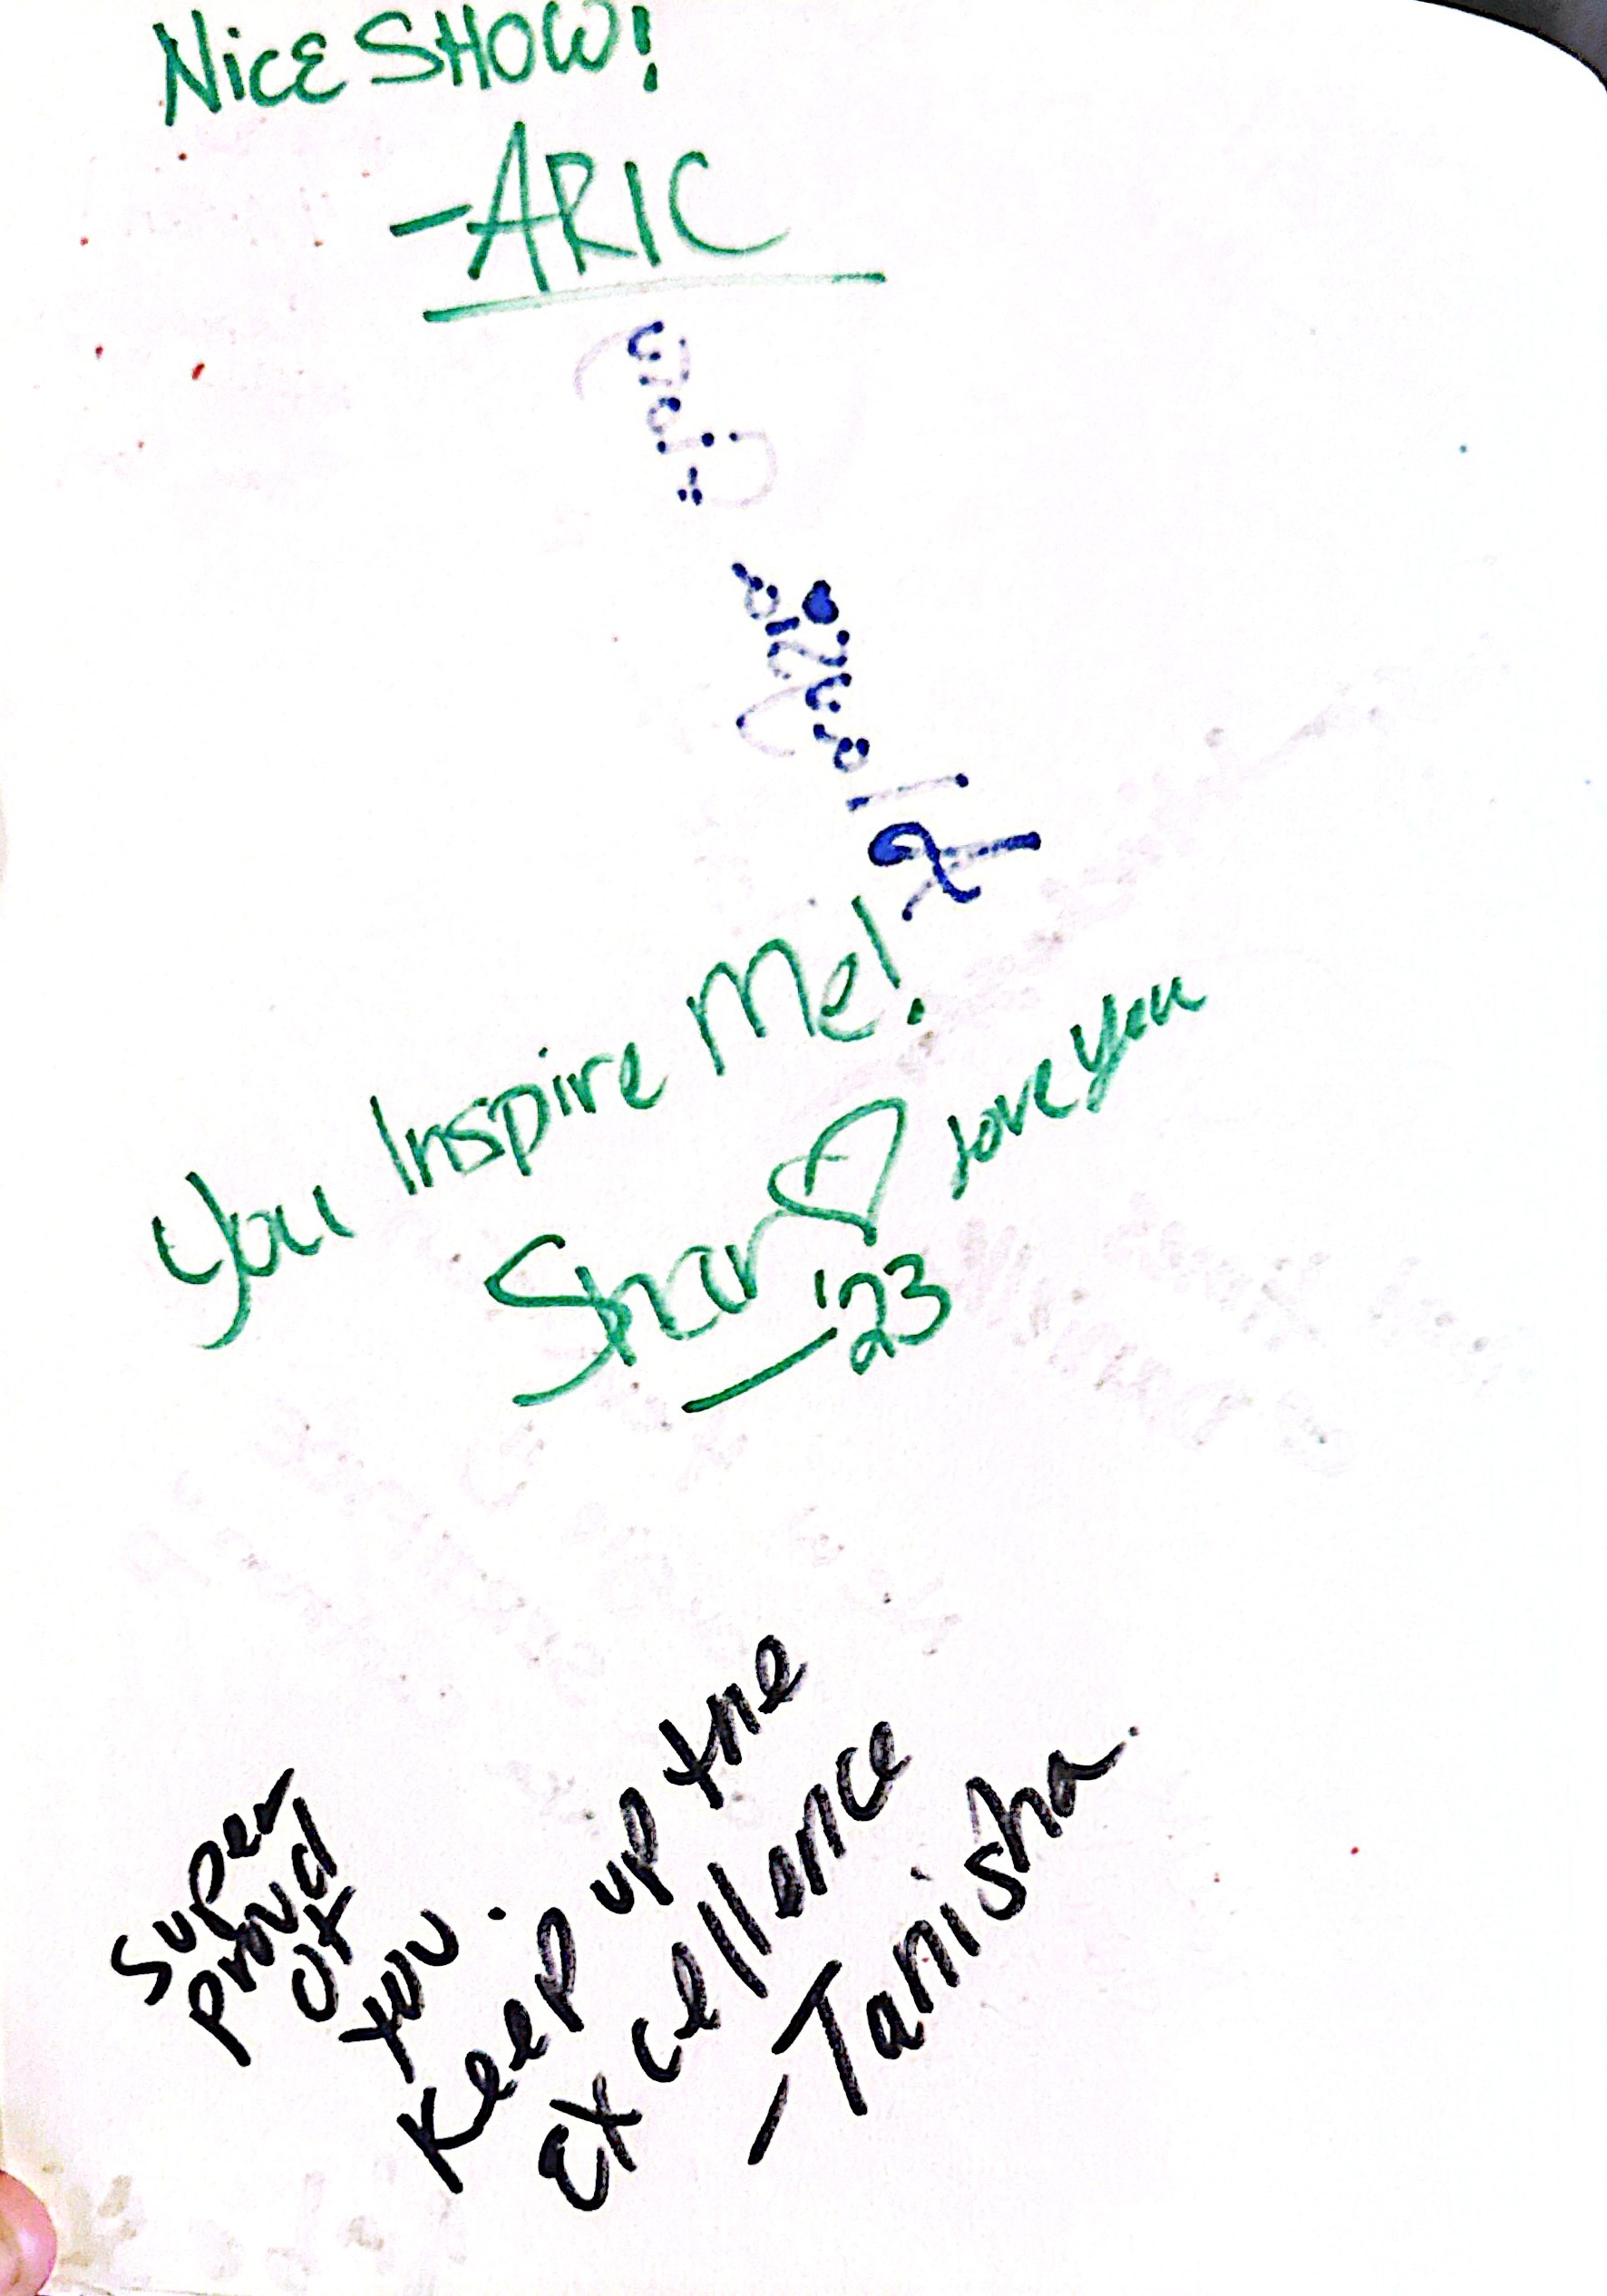 NICE SHOW!
-ARIC
You Inspire Me!
Shar love you
'23
super
proud
of
you.
Keep up the
excellence
-Tanisha.